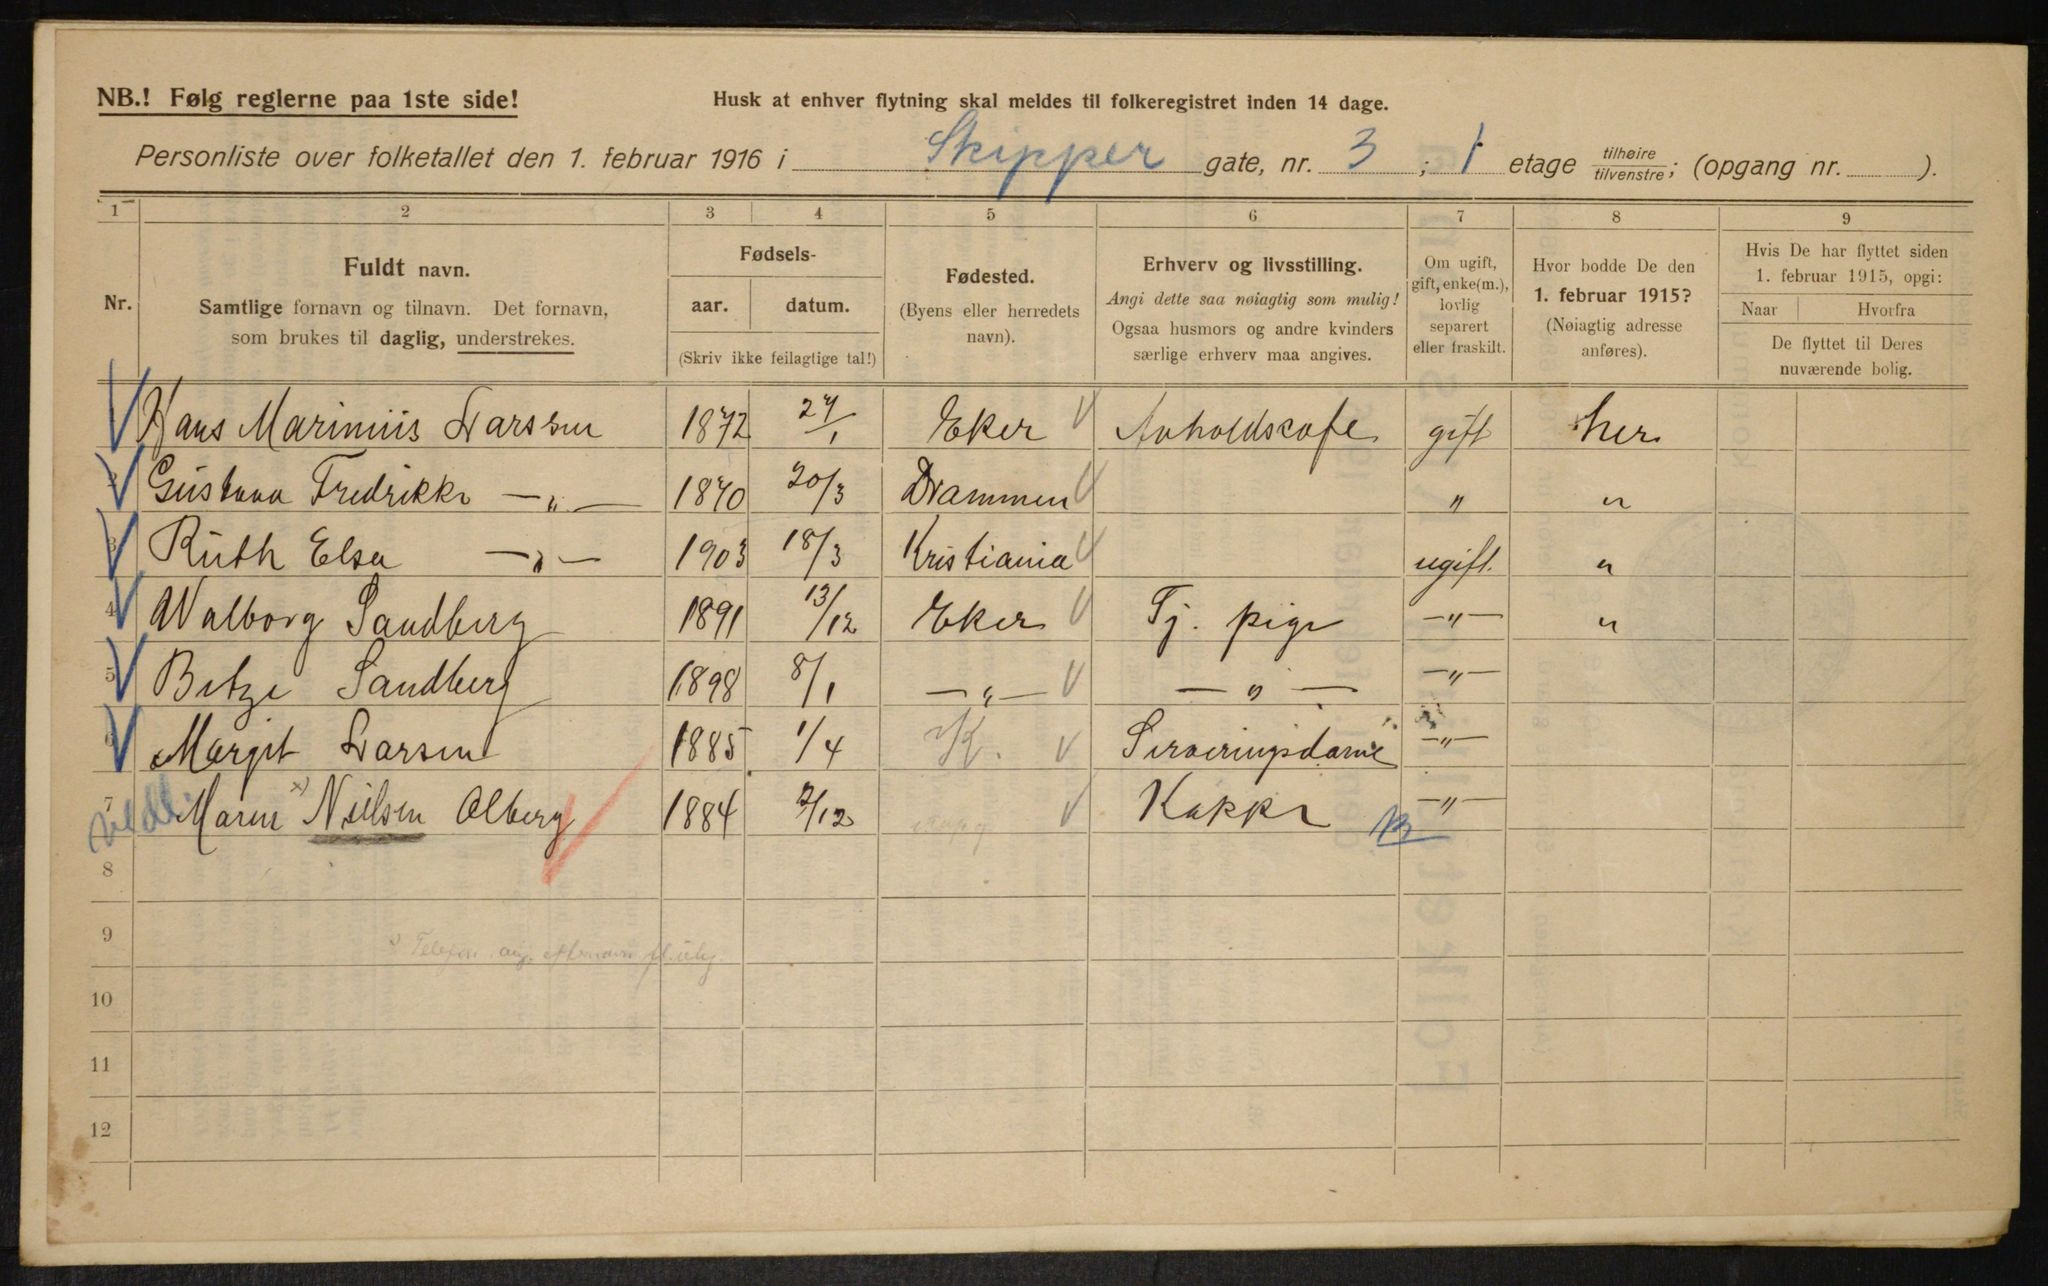 NB.! Følg reglerne paa 1ste side!
Husk at enhver flytning skal meldes til folkeregistret inden 14 dage.
Personliste over folketallet den 1. februar 1916 i Skipper gate, nr. 3 ; 1 etage tilhøire/tilvenstre; (opgang nr. ).
1 2 3 4 5 6 7 8 9
Nr.
Fuldt navn.
Samtlige fornavn og tilnavn. Det fornavn,
som brukes til daglig, understrekes.
Fødsels-
aar. datum.
(Skriv ikke feilagtige tal!)
Fødested.
(Byens eller herredets
navn).
Erhverv og livsstilling.
Angi dette saa nøiagtig som mulig!
Ogsaa husmors og andre kvinders
særlige erhverv maa angives.
Om ugift,
gift, enke(m.),
lovlig
separert
eller fraskilt.
Hvor bodde De den
1. februar 1915?
(Nøiagtig adresse
anføres).
Hvis De har flyttet siden
1. februar 1915, opgi:
Naar Hvorfra
De flyttet til Deres
nuværende bolig.
Hans Marinius Larssen 1872 27/1 Eker Avholdscafe gift her
2 Gustava Fredrikke —„— 1870 20/3 Drammen „ „
3 Ruth Elsa —„— 1903 18/3 Kristiania ugift. „
4 Walborg Sandberg 1891 13/12 Eker Tj. pige —„— „
5 Betzi Sandberg 1898 8/1 —„— —„— —„—
6 Margit Larsen 1885 1/4 K. Serveringsdame —„—
7 Maren x) Nielsen Olberg 1884 2/12 Kokke —„—
8
9
x) Telefon
10
11
12